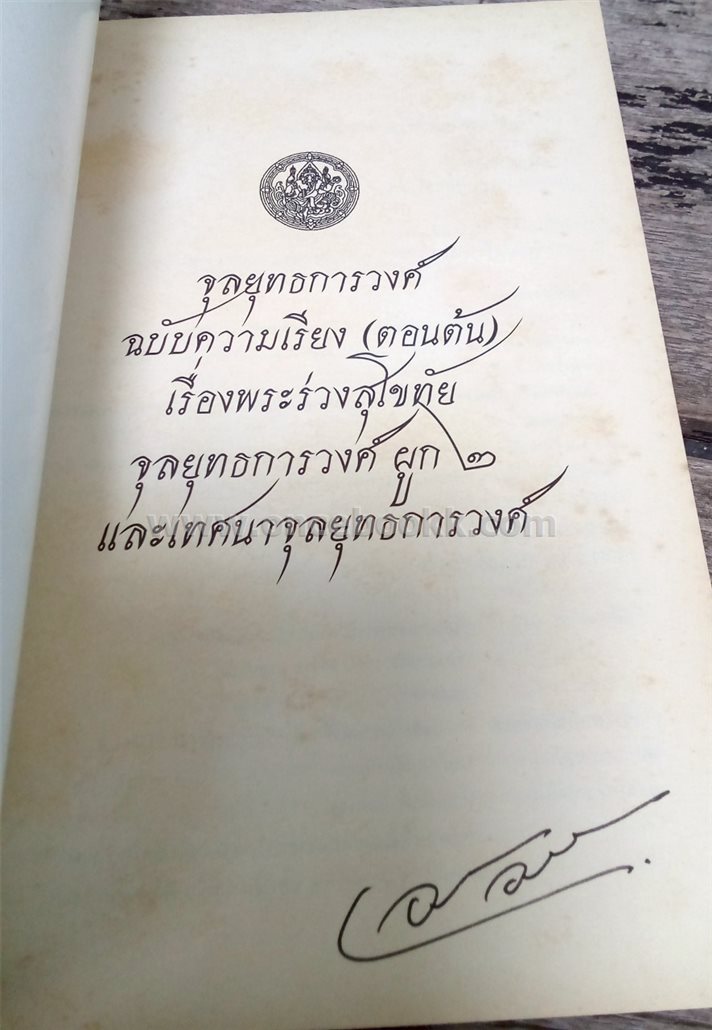 จุลยุทธการวงศ์
ฉบับความเรียง (ตอนต้น)
เรื่องพระร่วงสุโขทัย
จุลยุทธการวงศ์ ผูก ๒
และเทศนาจุลยุทธการวงศ์